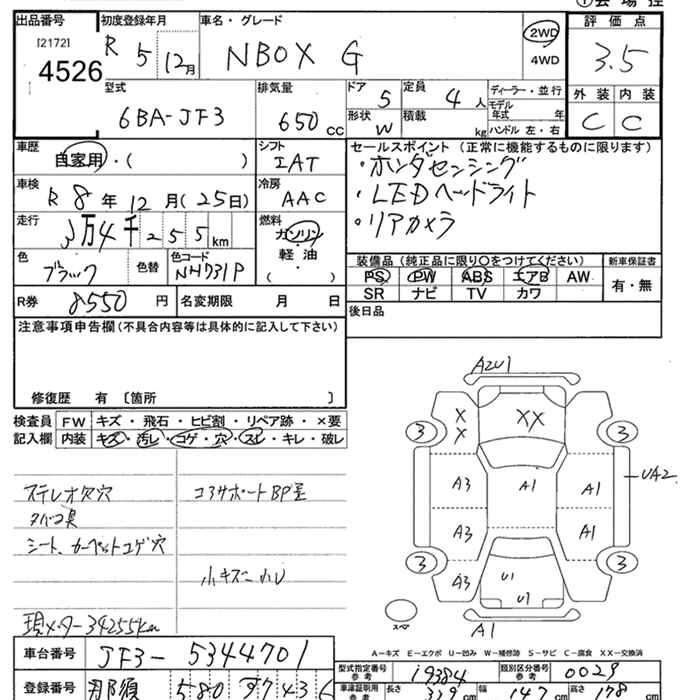 出品番号 初度登録年月 車名・グレード 評価点
[2172]
4526
R 5 12月 NBOX G 2WD 4WD 3.5
型式 排気量 ドア 定員 ディーラー・並行 外装 内装
6BA-JF3 650 CC 5 4人 モデル年式 年 C C
形状 W 積載 kg ハンドル 左・右
車歴 自家用・( ) シフト IAT セールスポイント(正常に機能するものに限ります)
・ホンダセンシング
・LEDヘッドライト
・リアカメラ
車検 R 8年 12月(25日) 冷房 AAC
走行 3万4千255km 燃料 ガソリン・軽油・( )
色 ブラック 色替 色コード NH731P
装備品(純正品に限り○をつけてください) 新車保証書
PS PW ABS エアB AW 有・無
SR ナビ TV カワ
R券 8550円 名変期限 月 日 後日品
注意事項申告欄(不具合内容等は具体的に記入して下さい)
修復歴 有 〔箇所 〕
検査員記入欄 FW キズ・飛石・ヒビ割・リペア跡・×要
内装 キズ・汚レ・コゲ・穴・スレ・キレ・破レ
ステレオ欠穴 コアサポートBP歪
タバコ臭
シート、カーペットコゲ穴
小キズ小U
現メーター34255km
AZU1
X X XX
3 3
A3 A1 A1 UA2
A3 A1
3 3
A3 U1
U1
A1
スペア
A－キズ E－エクボ U－凹み W－補修跡 S－サビ C－腐食 XX－交換済
車台番号 JF3-5344701
型式指定番号 参考 19384 類別区分番号 参考 0029
登録番号 那須 580
車庫証明用 参考 長さ 339cm 幅 147cm 高さ 178cm